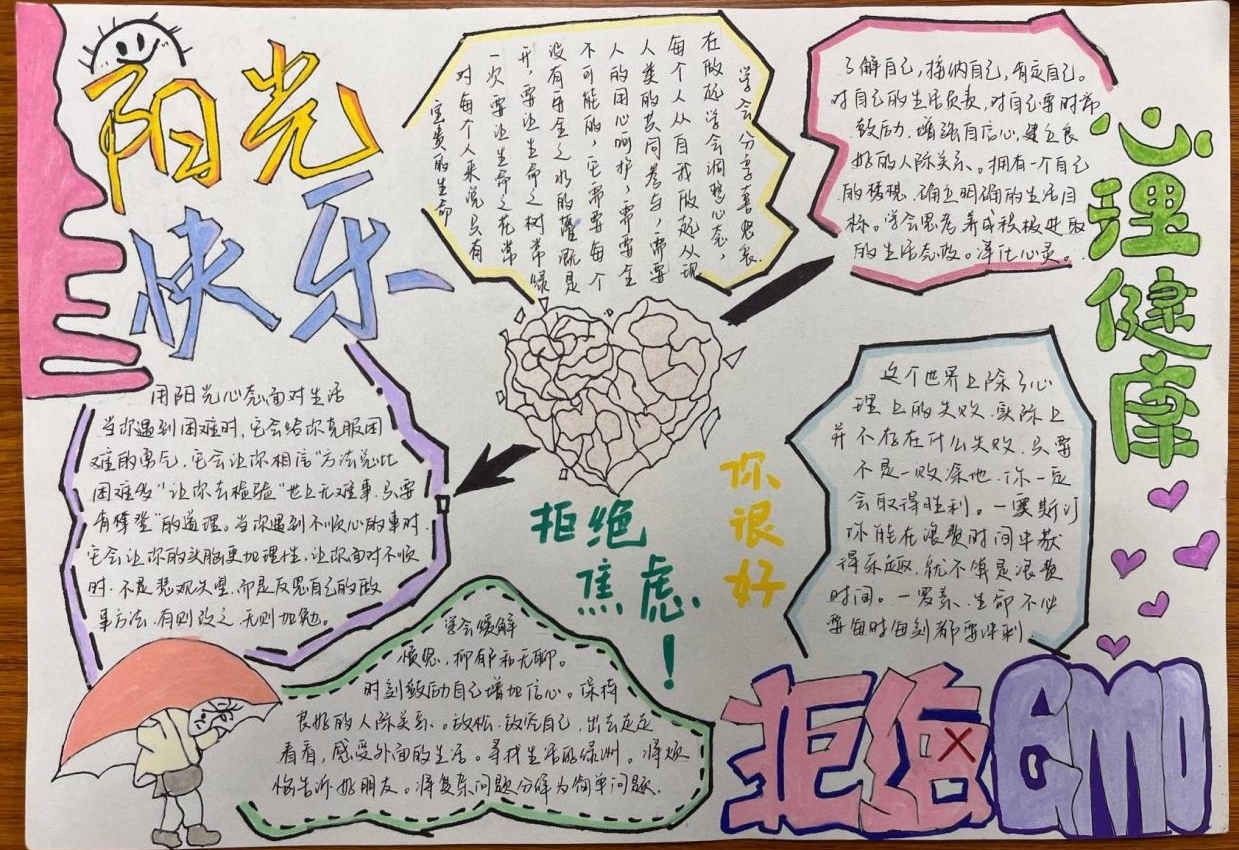 阳光
快乐
宝贵的生命
对每个人来说只有
一次要让生命之花常
开，要让生命之树常绿
没有平金之水的灌溉是
不可能的，它需要每个
人的用心呵护，需要全
人类的共同参与，需要
每个人从自我做起从现
在做起学会调整心态，
学会分享喜哀、
了解自己，接纳自己，肯定自己。
对自己的生活负责，对自己要时常
鼓励，增强自信心，建立良
好的人际关系、拥有一个自己
的梦想、确立明确的生活目
标。学会思考养成积极进取
的生活态度。净化心灵。
心理健康
用阳光心态面对生活
当你遇到困难时，它会给你克服困
难的勇气，它会让你相信"方法总比
困难多"让你去检验"世上无难事、只要
肯攀登"的道理。当你遇到不顺心的事时
它会让你的头脑更加理性，让你面对不顺
时、不是悲观失望、而是反思自己的做
事方法、有则改之、无则加勉。
拒绝
焦虑
！
你很好
这个世界上除了心
理上的失败、实际上
并不存在什么失败、只要
不是一败涂地、你一定
会取得胜利。一奥斯汀
你能在浪费时间中获
得乐趣、就不算是浪费
时间。一罗素、生命不必
要每时每刻都要冲刺
学会缓解
烦恼，抑郁和无聊。
时刻鼓励自己增加信心。保持
良好的人际关系。放松、放洽自己，出去走走
看看，感受外面的生活。寻找生活的绿洲。将烦
恼告诉好朋友。将复杂问题分解为简单问题.
拒绝EMO